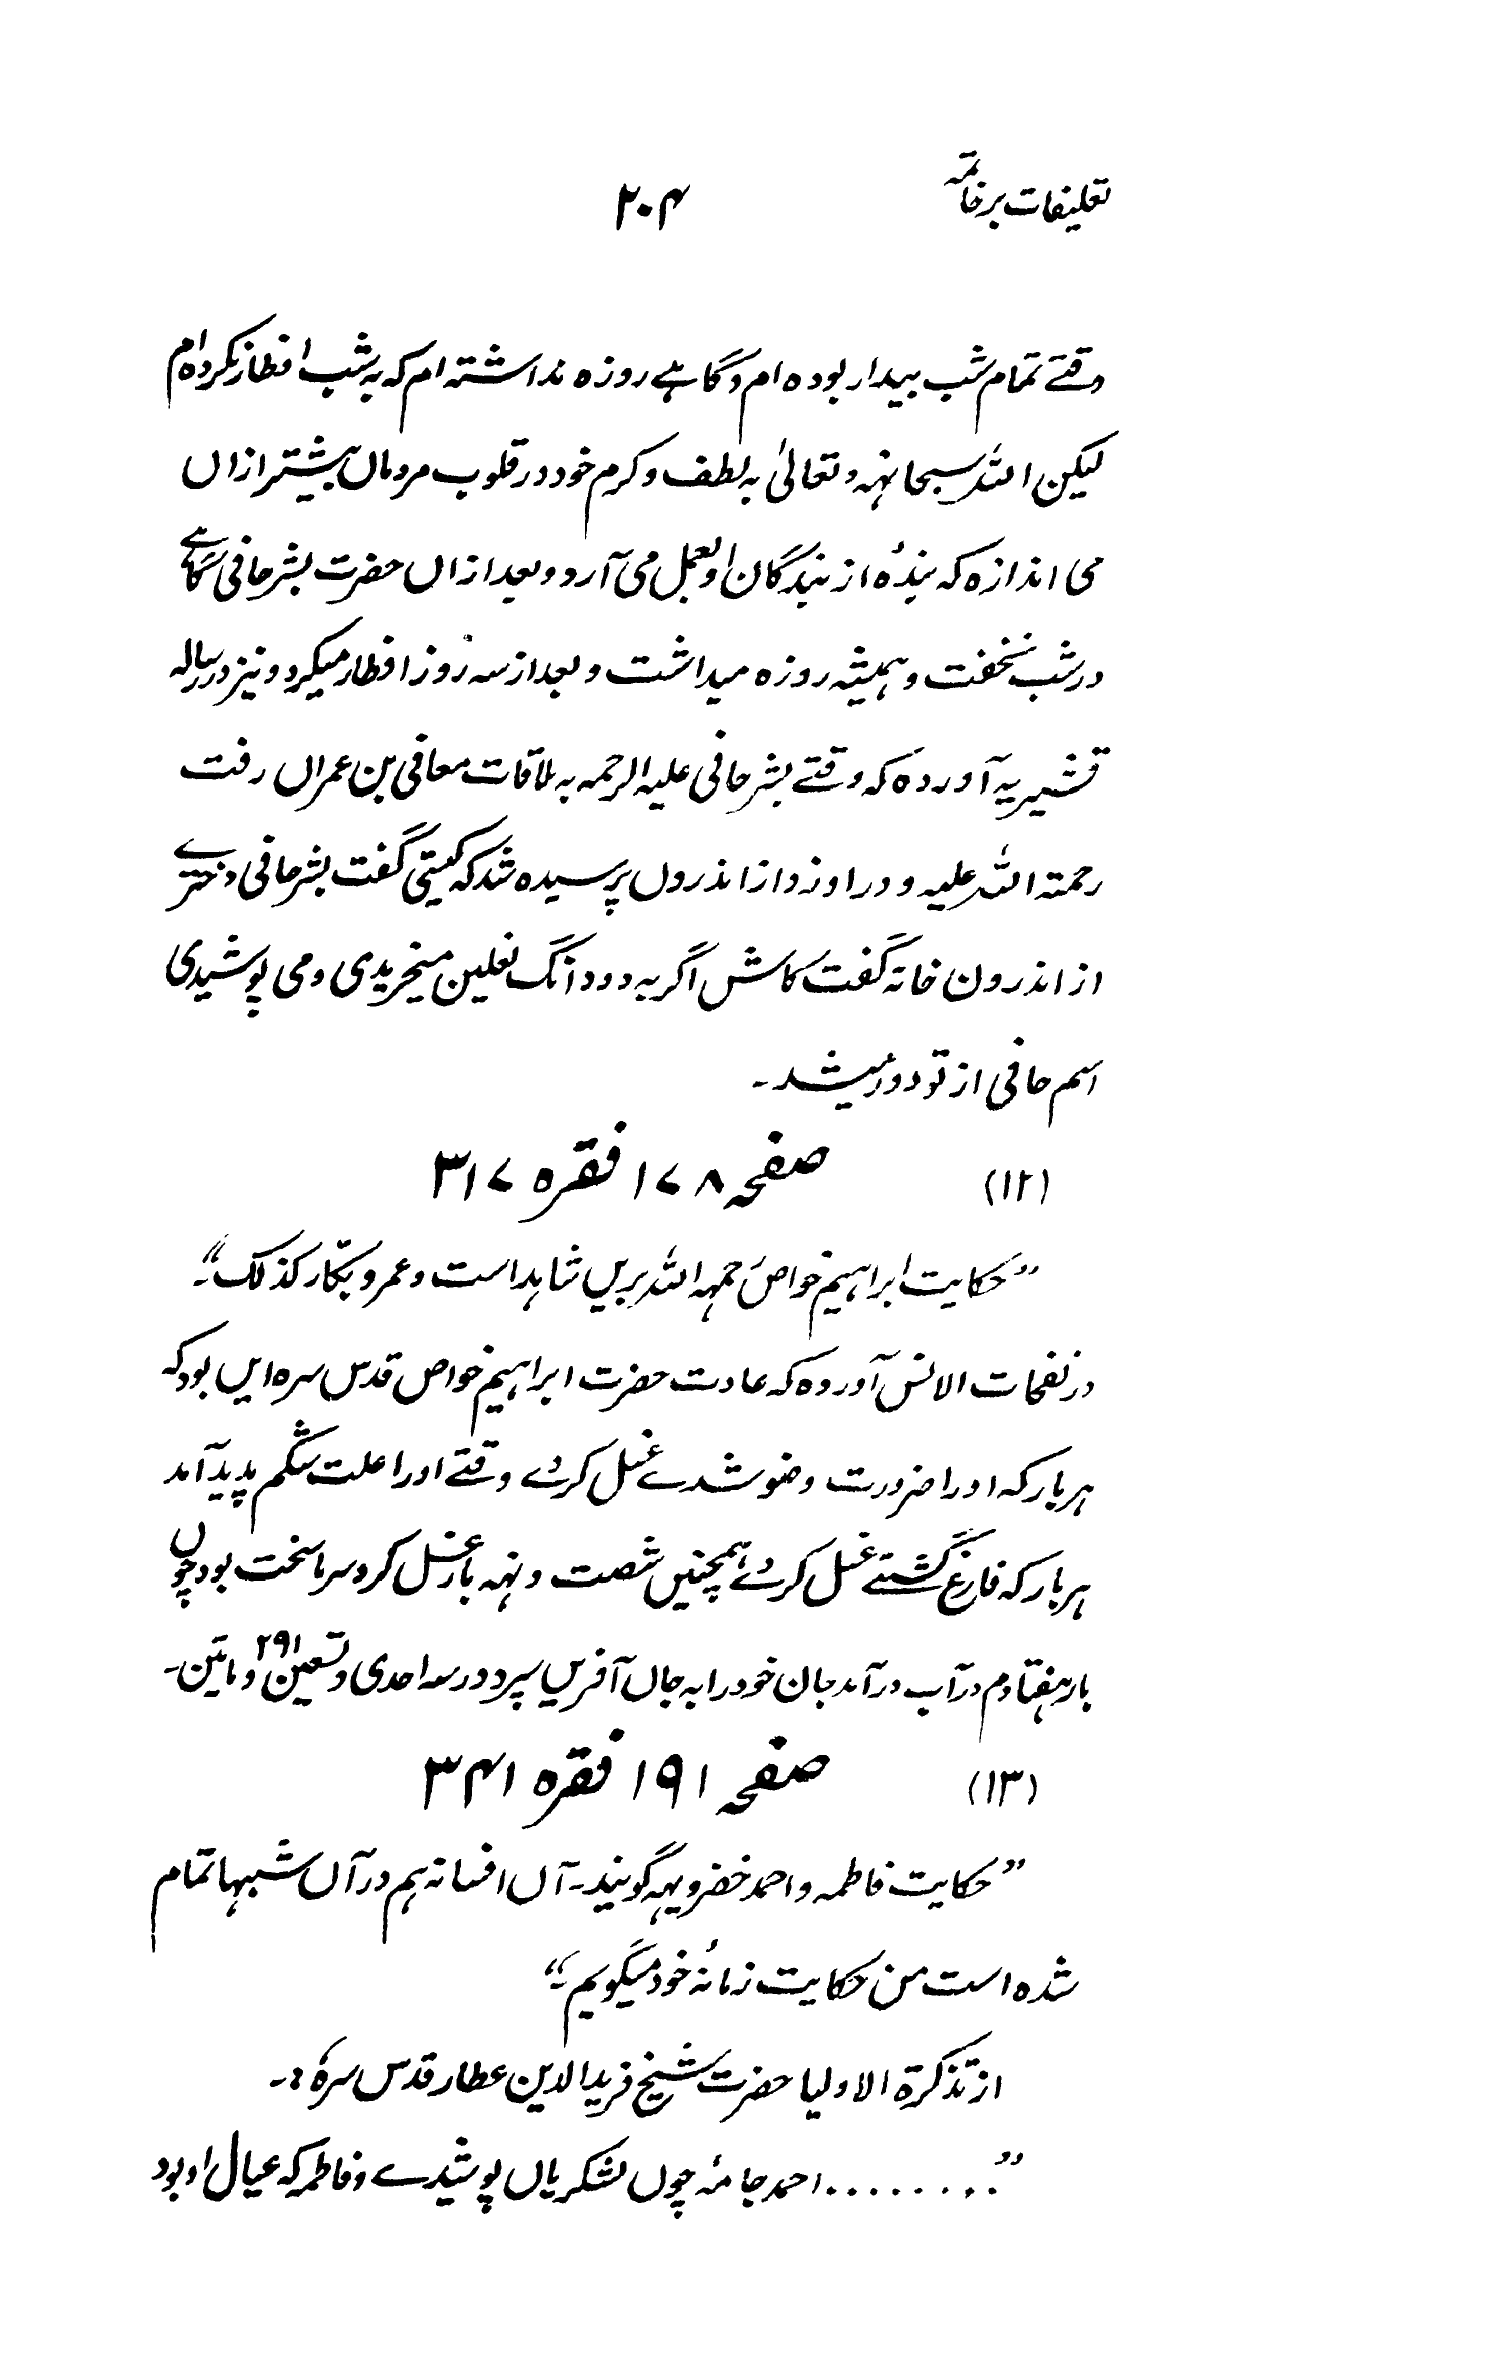 تعلیقات بر خاتمہ
۲۰۴
وقتے تمام شب بیدار بوده ام و گاہے روزه نداشتہ ام کہ بہ شب افطار نکرده ام
لیکن اللہ سبحانہ و تعالیٰ بہ لطف و کرم خود در قلوب مردمان بیشتر ازاں
می اندازه کہ بندۂ از بندگان او بعمل می آرد و بعد ازاں حضرت بشر حافی گاہے
در شب نخفت و ہمیشہ روزه میداشت و بعد از سہ روز افطار میکرد و نیز در رسالہ
قشیریہ آورده کہ وقتے بشر حافی علیہ الرحمہ بہ ملاقات معافی بن عمراں رفت
رحمتہ اللہ علیہ و در او زد از اندروں پرسیده شد کہ کیستی گفت بشر حافی دخترے
از اندرون خانہ گفت کاش اگر بہ دو دانگ نعلین میخریدی و می پوشیدی
اسم حافی از تو دور میشد۔
(۱۲) صفحہ ۱۷۸ فقره ۳۱۷
”حکایت ابراہیم خواص رحمہ اللہ بریں شاہد است و عمرو بکّار کذلک“۔
در نفحات الانس آورده کہ عادت حضرت ابراہیم خواص قدس سره ایں بود کہ
ہر بار کہ اورا ضرورت وضو شدے غسل کردے وقتے اورا علت شکم پدید آمد
ہر بار کہ فارغ گشتے غسل کردے ہمچنیں شصت و نہہ بار غسل کرد سرما سخت بود چوں
بار ہفتادم در آب درآمد جان خود را بہ جاں آفریں سپرد در سہ احدی و تسعین ۲۹۱ و مائتین۔
(۱۳) صفحہ ۱۹۱ فقره ۳۴۱
”حکایت فاطمہ و احمد خضرویہہ گویند۔ آں افسانہ ہم در آں شبہا تمام
شده است من حکایت زمانۂ خود میگویم۔“
از تذکرة الاولیا حضرت شیخ فریدالدین عطار قدس سرهٗ :۔
”......... احمد جامہ چوں لشکریاں پوشیدے و فاطمہ کہ عیال او بود